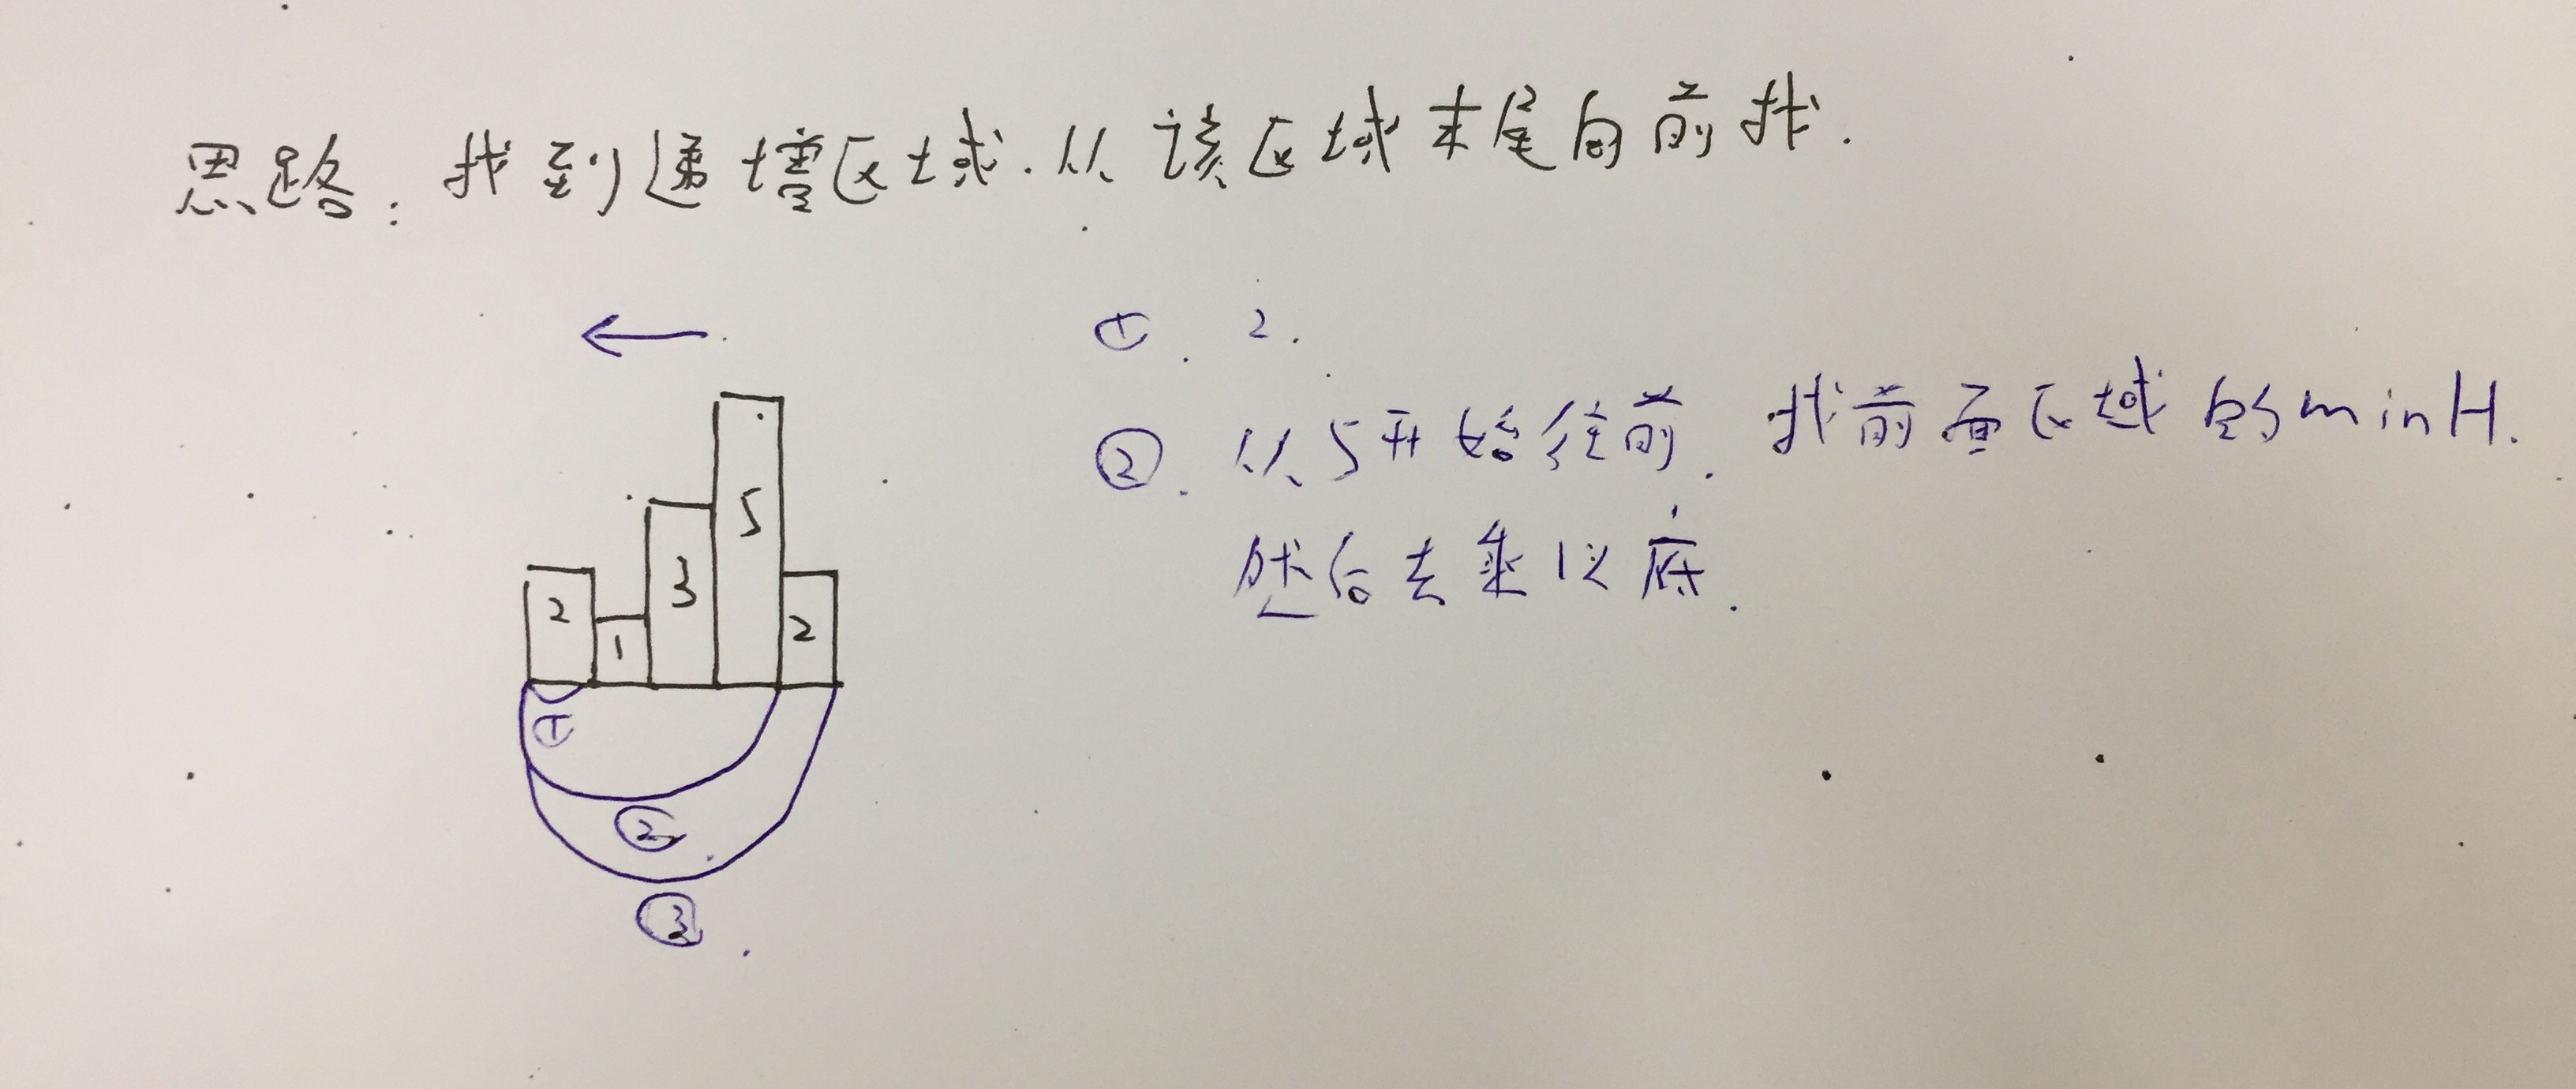 思路：找到递增区域.从该区域末尾向前找.
①. 2.
②. 从5开始往前. 找前面区域的minH.
然后去乘以底.
5
3
2
1
2
①
②
③